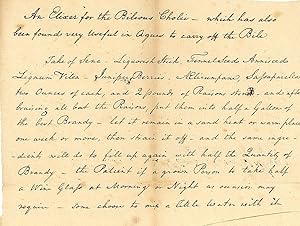 An Elixer for the Bilious Cholic - which has also
been found very Useful in Agues to carry off the Bile
Take of Sena - Liquorish Stick, Anniseed
Lignum Vitea - Juniper Berries, Allicumpane, Sassaparella
two Ounces of each, and 2 pounds of Raisons and after
bruising all but the Raisons, put them into half a Gallon of
the best Brandy - let it remain in a sand heat or warm place
one week or more, then strain it off - and the same ingre-
dients will do to fill up again with half the Quantity of
Brandy - the Patient if a grown Person to take half
a Wine Glass at Morning or Night as occasion may
require - some choose to mix a little Water with it